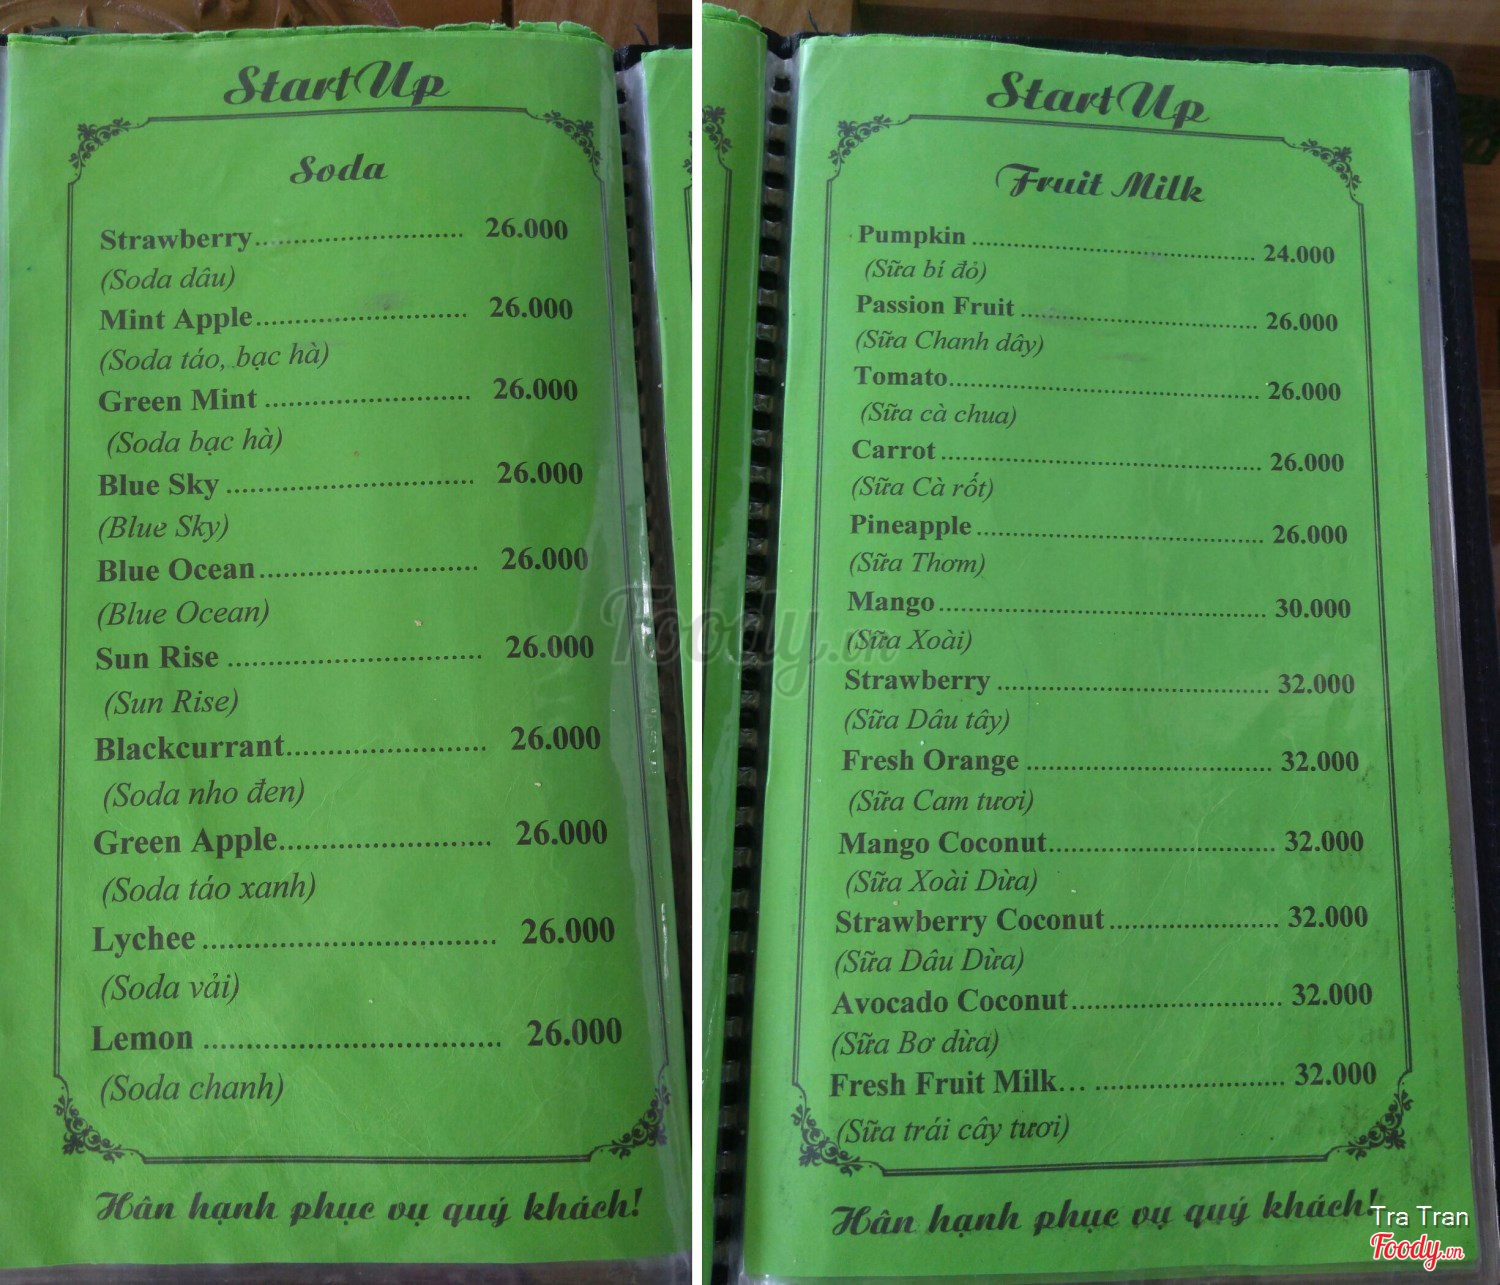 StartUp
Soda
Strawberry.......................... 26.000
(Soda dâu)
Mint Apple.......................... 26.000
(Soda táo, bạc hà)
Green Mint .......................... 26.000
(Soda bạc hà)
Blue Sky .......................... 26.000
(Blue Sky)
Blue Ocean.......................... 26.000
(Blue Ocean)
Sun Rise .......................... 26.000
(Sun Rise)
Blackcurrant.......................... 26.000
(Soda nho đen)
Green Apple.......................... 26.000
(Soda táo xanh)
Lychee .......................... 26.000
(Soda vải)
Lemon .......................... 26.000
(Soda chanh)
Hân hạnh phục vụ quý khách!
StartUp
Fruit Milk
Pumpkin .......................... 24.000
(Sữa bí đỏ)
Passion Fruit .......................... 26.000
(Sữa Chanh dây)
Tomato.......................... 26.000
(Sữa cà chua)
Carrot .......................... 26.000
(Sữa Cà rốt)
Pineapple .......................... 26.000
(Sữa Thơm)
Mango .......................... 30.000
(Sữa Xoài)
Strawberry .......................... 32.000
(Sữa Dâu tây)
Fresh Orange .......................... 32.000
(Sữa Cam tươi)
Mango Coconut.......................... 32.000
(Sữa Xoài Dừa)
Strawberry Coconut .......................... 32.000
(Sữa Dâu Dừa)
Avocado Coconut .......................... 32.000
(Sữa Bơ dừa)
Fresh Fruit Milk... .......................... 32.000
(Sữa trái cây tươi)
Hân hạnh phục vụ quý khách!
Foody.vn
Tra Tran
Foody.vn